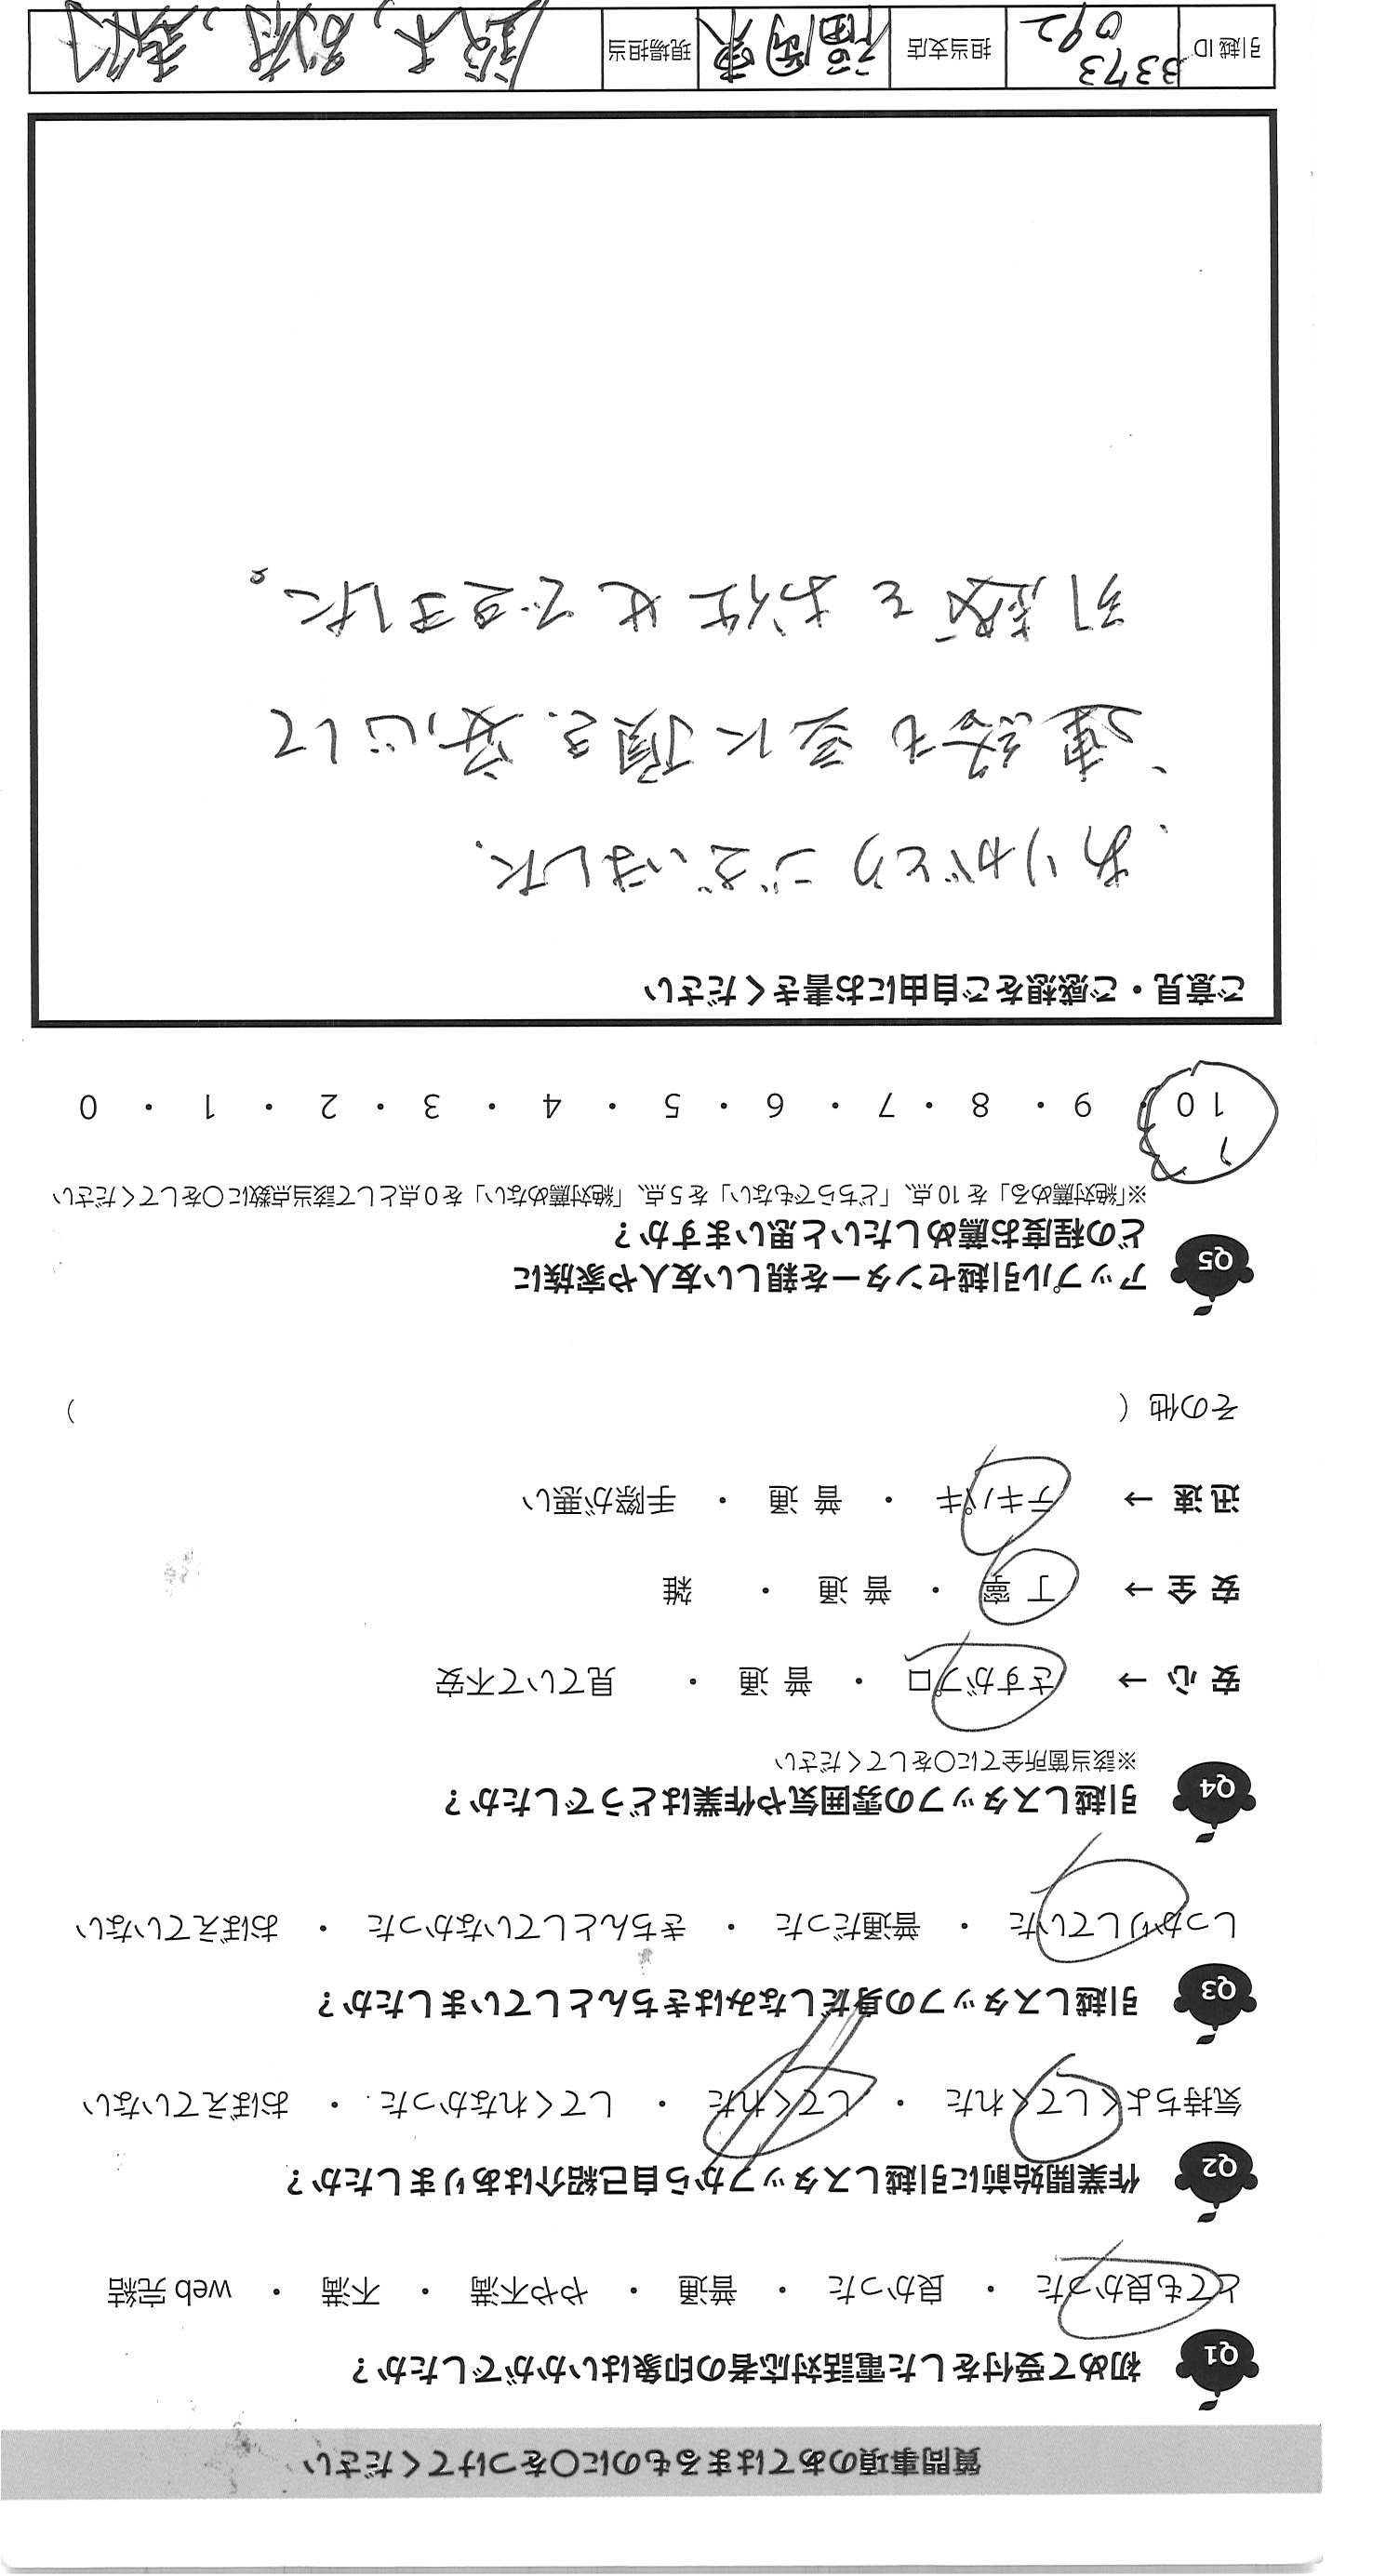 質問事項のあてはまるものに○をつけてください
Q1 初めて受付をした電話対応者の印象はいかがでしたか？
とても良かった ・ 良かった ・ 普通 ・ やや不満 ・ 不満 ・ web 完結
Q2 作業開始前に引越しスタッフから自己紹介はありましたか？
気持ちよくしてくれた ・ してくれた ・ してくれなかった ・ おぼえていない
Q3 引越しスタッフの身だしなみはきちんとしていましたか？
しっかりしていた ・ 普通だった ・ きちんとしていなかった ・ おぼえていない
Q4 引越しスタッフの雰囲気や作業はどうでしたか？
※該当箇所全てに○をしてください
安 心 → さすがプロ ・ 普 通 ・ 見ていて不安
安 全 → 丁 寧 ・ 普 通 ・ 雑
迅 速 → テキパキ ・ 普 通 ・ 手際が悪い
その他（ ）
Q5 アップル引越センターを親しい友人や家族に
どの程度お薦めしたいと思いますか？
※「絶対薦める」を 10 点、「どちらでもない」を 5 点、「絶対薦めない」を 0 点として該当点数に○をしてください
10 ・ 9 ・ 8 ・ 7 ・ 6 ・ 5 ・ 4 ・ 3 ・ 2 ・ 1 ・ 0
ご意見・ご感想をご自由にお書きください
・ありがとうございました。
・連絡もまめに頂き、安心して
引越をお任せできました。
引越 ID 3373
092 担当支店 福岡東 現場担当 鈴木,